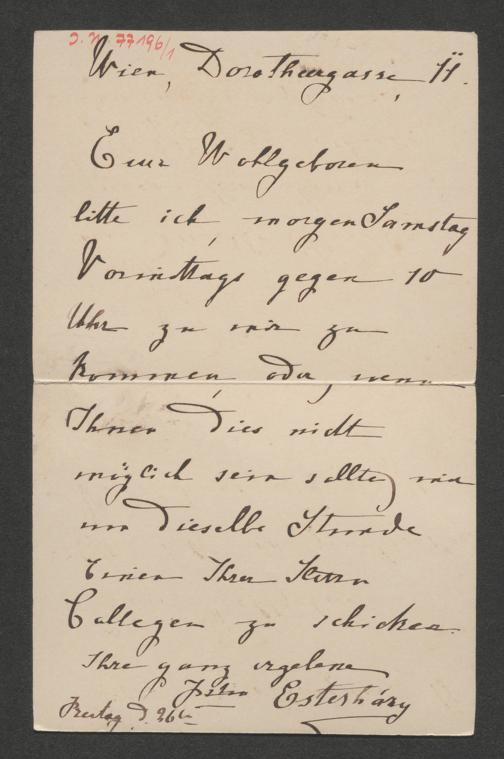 J. N. 77196/1
Wien, Dorotheergasse, 11.
Euer Wohlgeboren
bitte ich, morgen Samstag
Vormittags gegen 10
Uhr zu mir zu
kommen, oder, wenn
Ihnen dies nicht
möglich sein sollte, mir
um dieselbe Stunde
Einen Ihrer Herrn
Collegen zu schicken.
Ihre ganz ergebene
Esterházy
Freitag d. 26ten